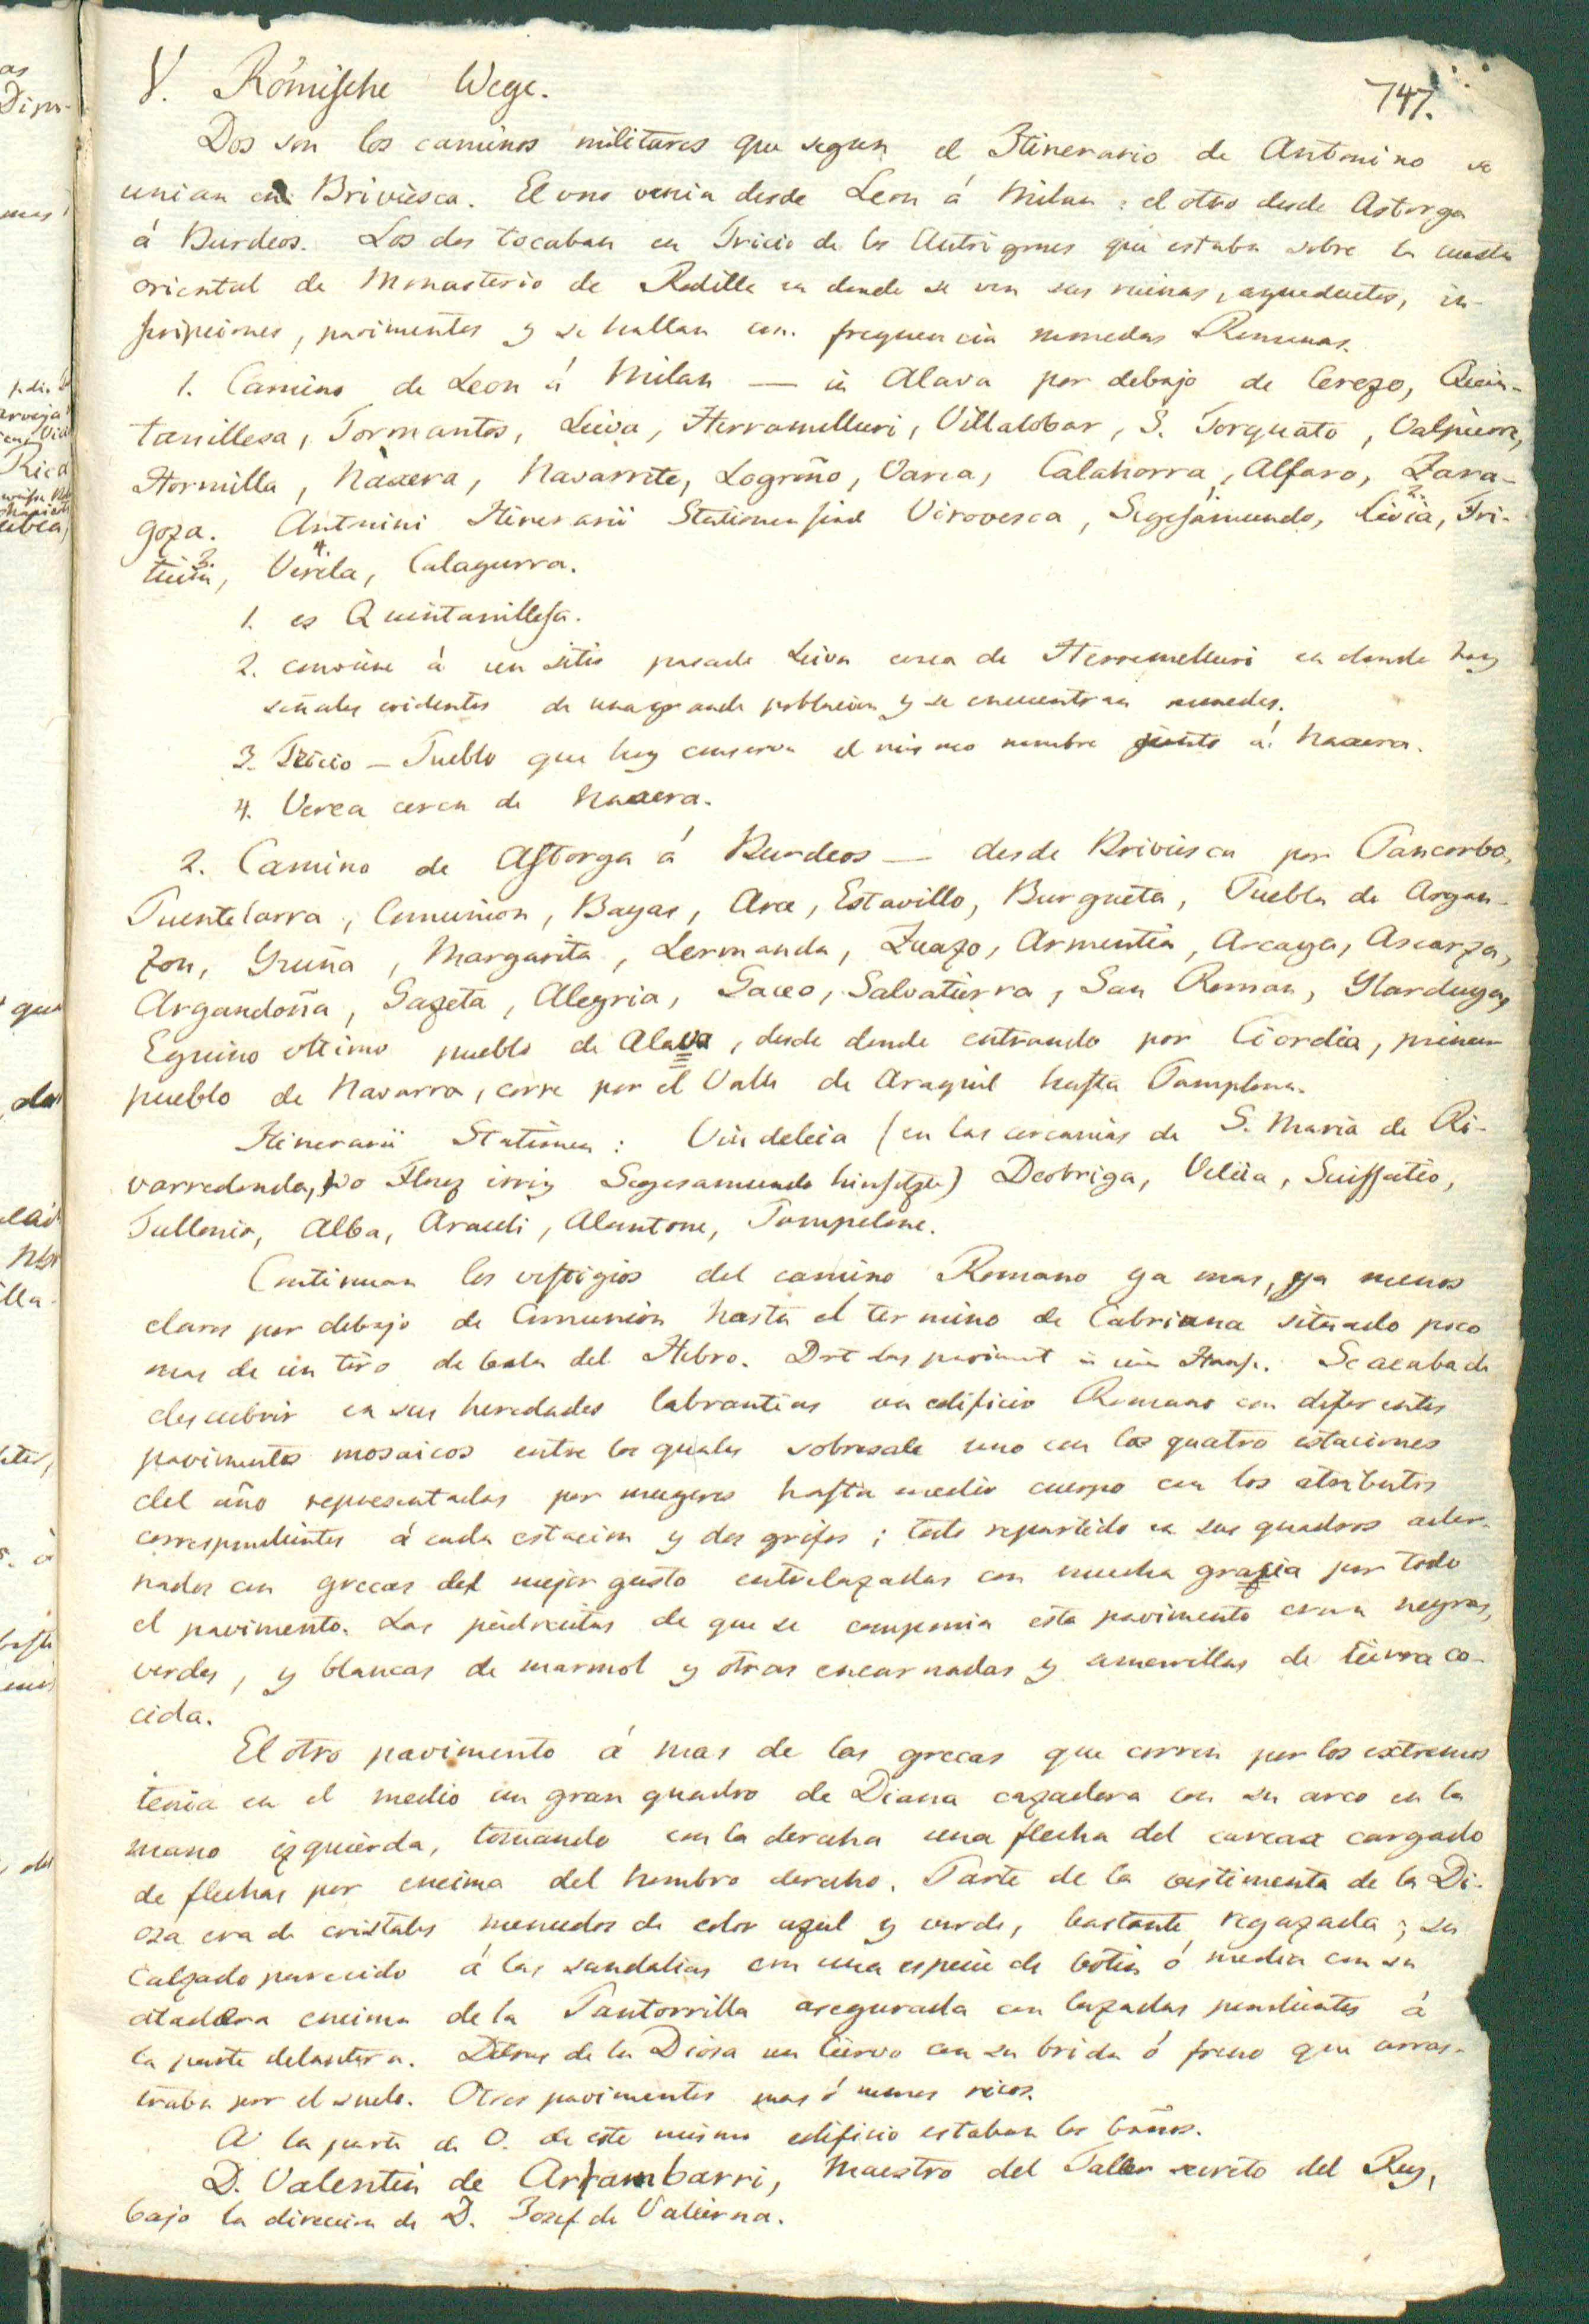 747.
V. Römische Wege.
Dos son los caminos militares que segun el Itinerario de Antonino se
unian en Briviesca. El uno venia desde Leon á Milan : el otro desde Astorga
á Burdeos. Los dos tocaban en Tricio de los Autrigones que estaba sobre la cuesta
oriental de Monasterio de Rodilla en donde se ven sus ruinas, aqueductos, in-
scripciones, pavimentos y se hallan con frequencia monedas Romanas.
1. Camino de Leon á Milan — in Alava por debajo de Cerezo, Quin-
tanillesa, Tormantos, Leiva, Herramelluri, Villalobar, S. Torquato, Valpierre,
Hormilla, Náxera, Navarrete, Logroño, Varea, Calahorra, Alfaro, Zara-
goza. Antonini Itinerarii Stationen sind Virovesca, Segesamundo, Livia, Tri-
tium, Verela, Calagurra.
1. es Quintanillesa.
2. conviene á un sitio pasado Leiva cerca de Herremelluri en donde hay
señales evidentes de una grande poblacion y se encuentran monedas.
3. Tricio — Pueblo que hoy conserva el mismo nombre junto á Naxera.
4. Verea cerca de Naxera.
2. Camino de Astorga á Burdeos — desde Briviesca por Pancorbo,
Puentelarra, Comunion, Bayas, Arce, Estavillo, Burgueta, Puebla de Argan-
zon, Yruña, Margarita, Lermanda, Zuazo, Armentia, Arcaya, Ascarza,
Argandoña, Gazeta, Alegria, Gaceo, Salvatierra, San Roman, Ylarduya,
Eguino ultimo pueblo de Alava, desde donde entrando por Ciordia, primer
pueblo de Navarra, corre por el Valle de Araquil hasta Pamplona.
Itinerarii Stationen : Vindeleia (en las cercanias de S. Maria de Ri-
varredonda, wo Florez irrig Segesamundo hinsetzte) Deobriga, Veleia, Suissatio,
Tullonio, Alba, Araceli, Alantone, Pompelone.
Continuan los vestigios del camino Romano ya mas, ya menos
claros por debajo de Comunion hasta el termino de Cabriana situado poco
mas de un tiro de bala del Hebro. Se acaba de
descubrir en sus heredades labrantias un edificio Romano con diferentes
pavimentos mosaicos entre los quales sobresale uno con las quatro estaciones
del año representadas por mugeres hasta medio cuerpo con los atributos
correspondientes á cada estacion y dos grifos ; todo repartido en sus quadros ador-
nados con grecas del mejor gusto entrelazadas con mucha gracia por todo
el pavimento. Las piedrecitas de que se componia este pavimento eran negras,
verdes, y blancas de marmol y otras encarnadas y amarillas de tierra co-
cida.
El otro pavimento á mas de las grecas que corren por los extremos
tenia en el medio un gran quadro de Diana cazadora con su arco en la
mano izquierda, tomando con la derecha una flecha del carcax cargado
de flechas por encima del hombro derecho. Parte de la vestimenta de la Di-
osa era de cristales menudos de color azul y verde, bastante regazada ; su
calzado parecido á las sandalias con una especie de botin ó media con su
atadera encima de la Pantorrilla asegurada con lazadas pendientes á
la parte delantera. Detras de la Diosa un Ciervo con su brida ó freno que arras-
traba por el suelo. Otros pavimentos mas ó menos ricos.
A la parte de O. de este mismo edificio estaban los baños.
D. Valentin de Arrambarri, Maestro del Taller secreto del Rey,
bajo la direccion de D. Josef de